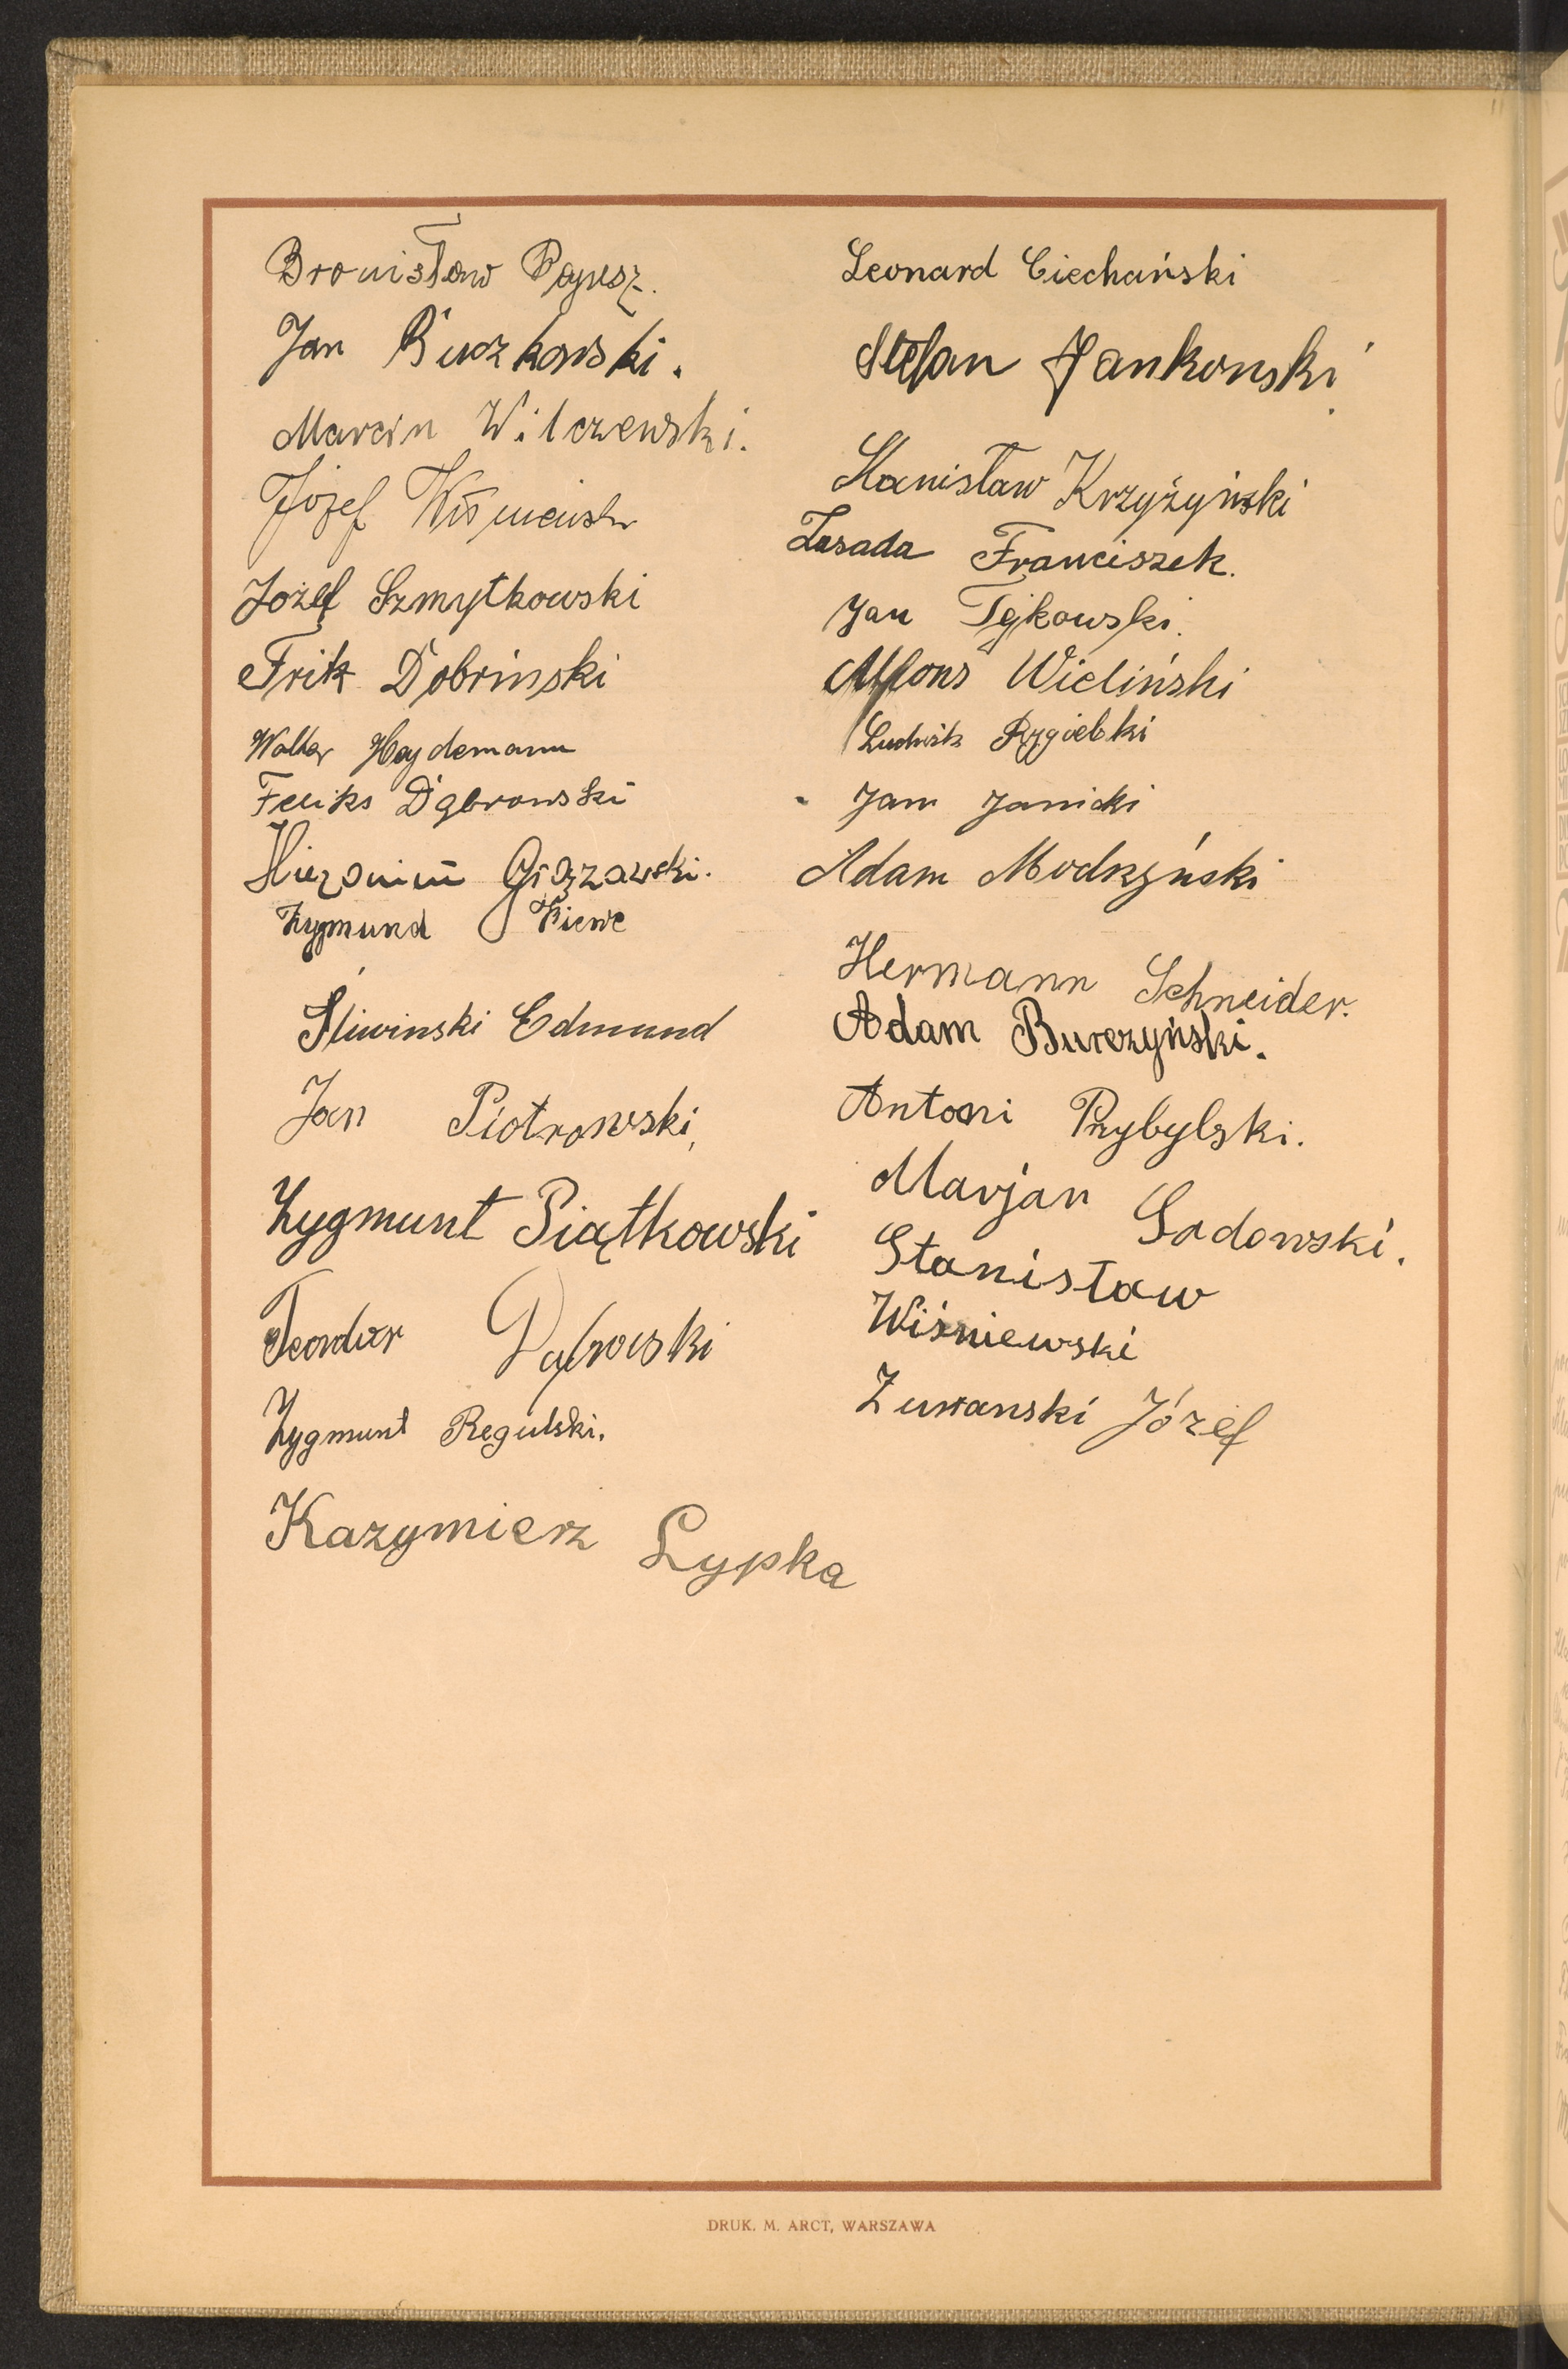 Bronisław
Jan Buczkowski.
Marcin Wilczewski.
Józef
Jozef Szmytkowski
Frik Dobrinski
Walter Heydemann
Feliks Dąbrowski
Zygmund Kiewe
Śliwinski Edmund
Jan Piotrowski,
Zygmunt Piątkowski
Teodor Dąbrowski
Zygmunt Regulski.
Kazymierz Lypka
Leonard Ciechański
Stefan Jankowski
Stanisław Krzyżyński
Zasada Franciszek.
Jan
Alfons Wieliński
Ludwik Rzgielski
Jan Janicki
Adam Modrzyński
Hermann Schneider.
Adam Burczyński.
Antoni Przybylski.
Marjan Sadowski.
Stanisław
Wiśniewski
Żurański Józef
DRUK. M. ARCT, WARSZAWA